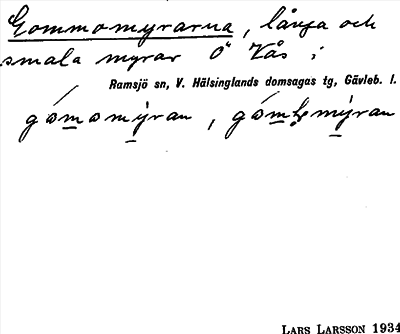 Gommomyrarna, långa och
smala myrar Ö Kås i
Ramsjö sn, V. Hälsinglands domsagas tg, Gävleb. l.
LARS LARSSON 1934